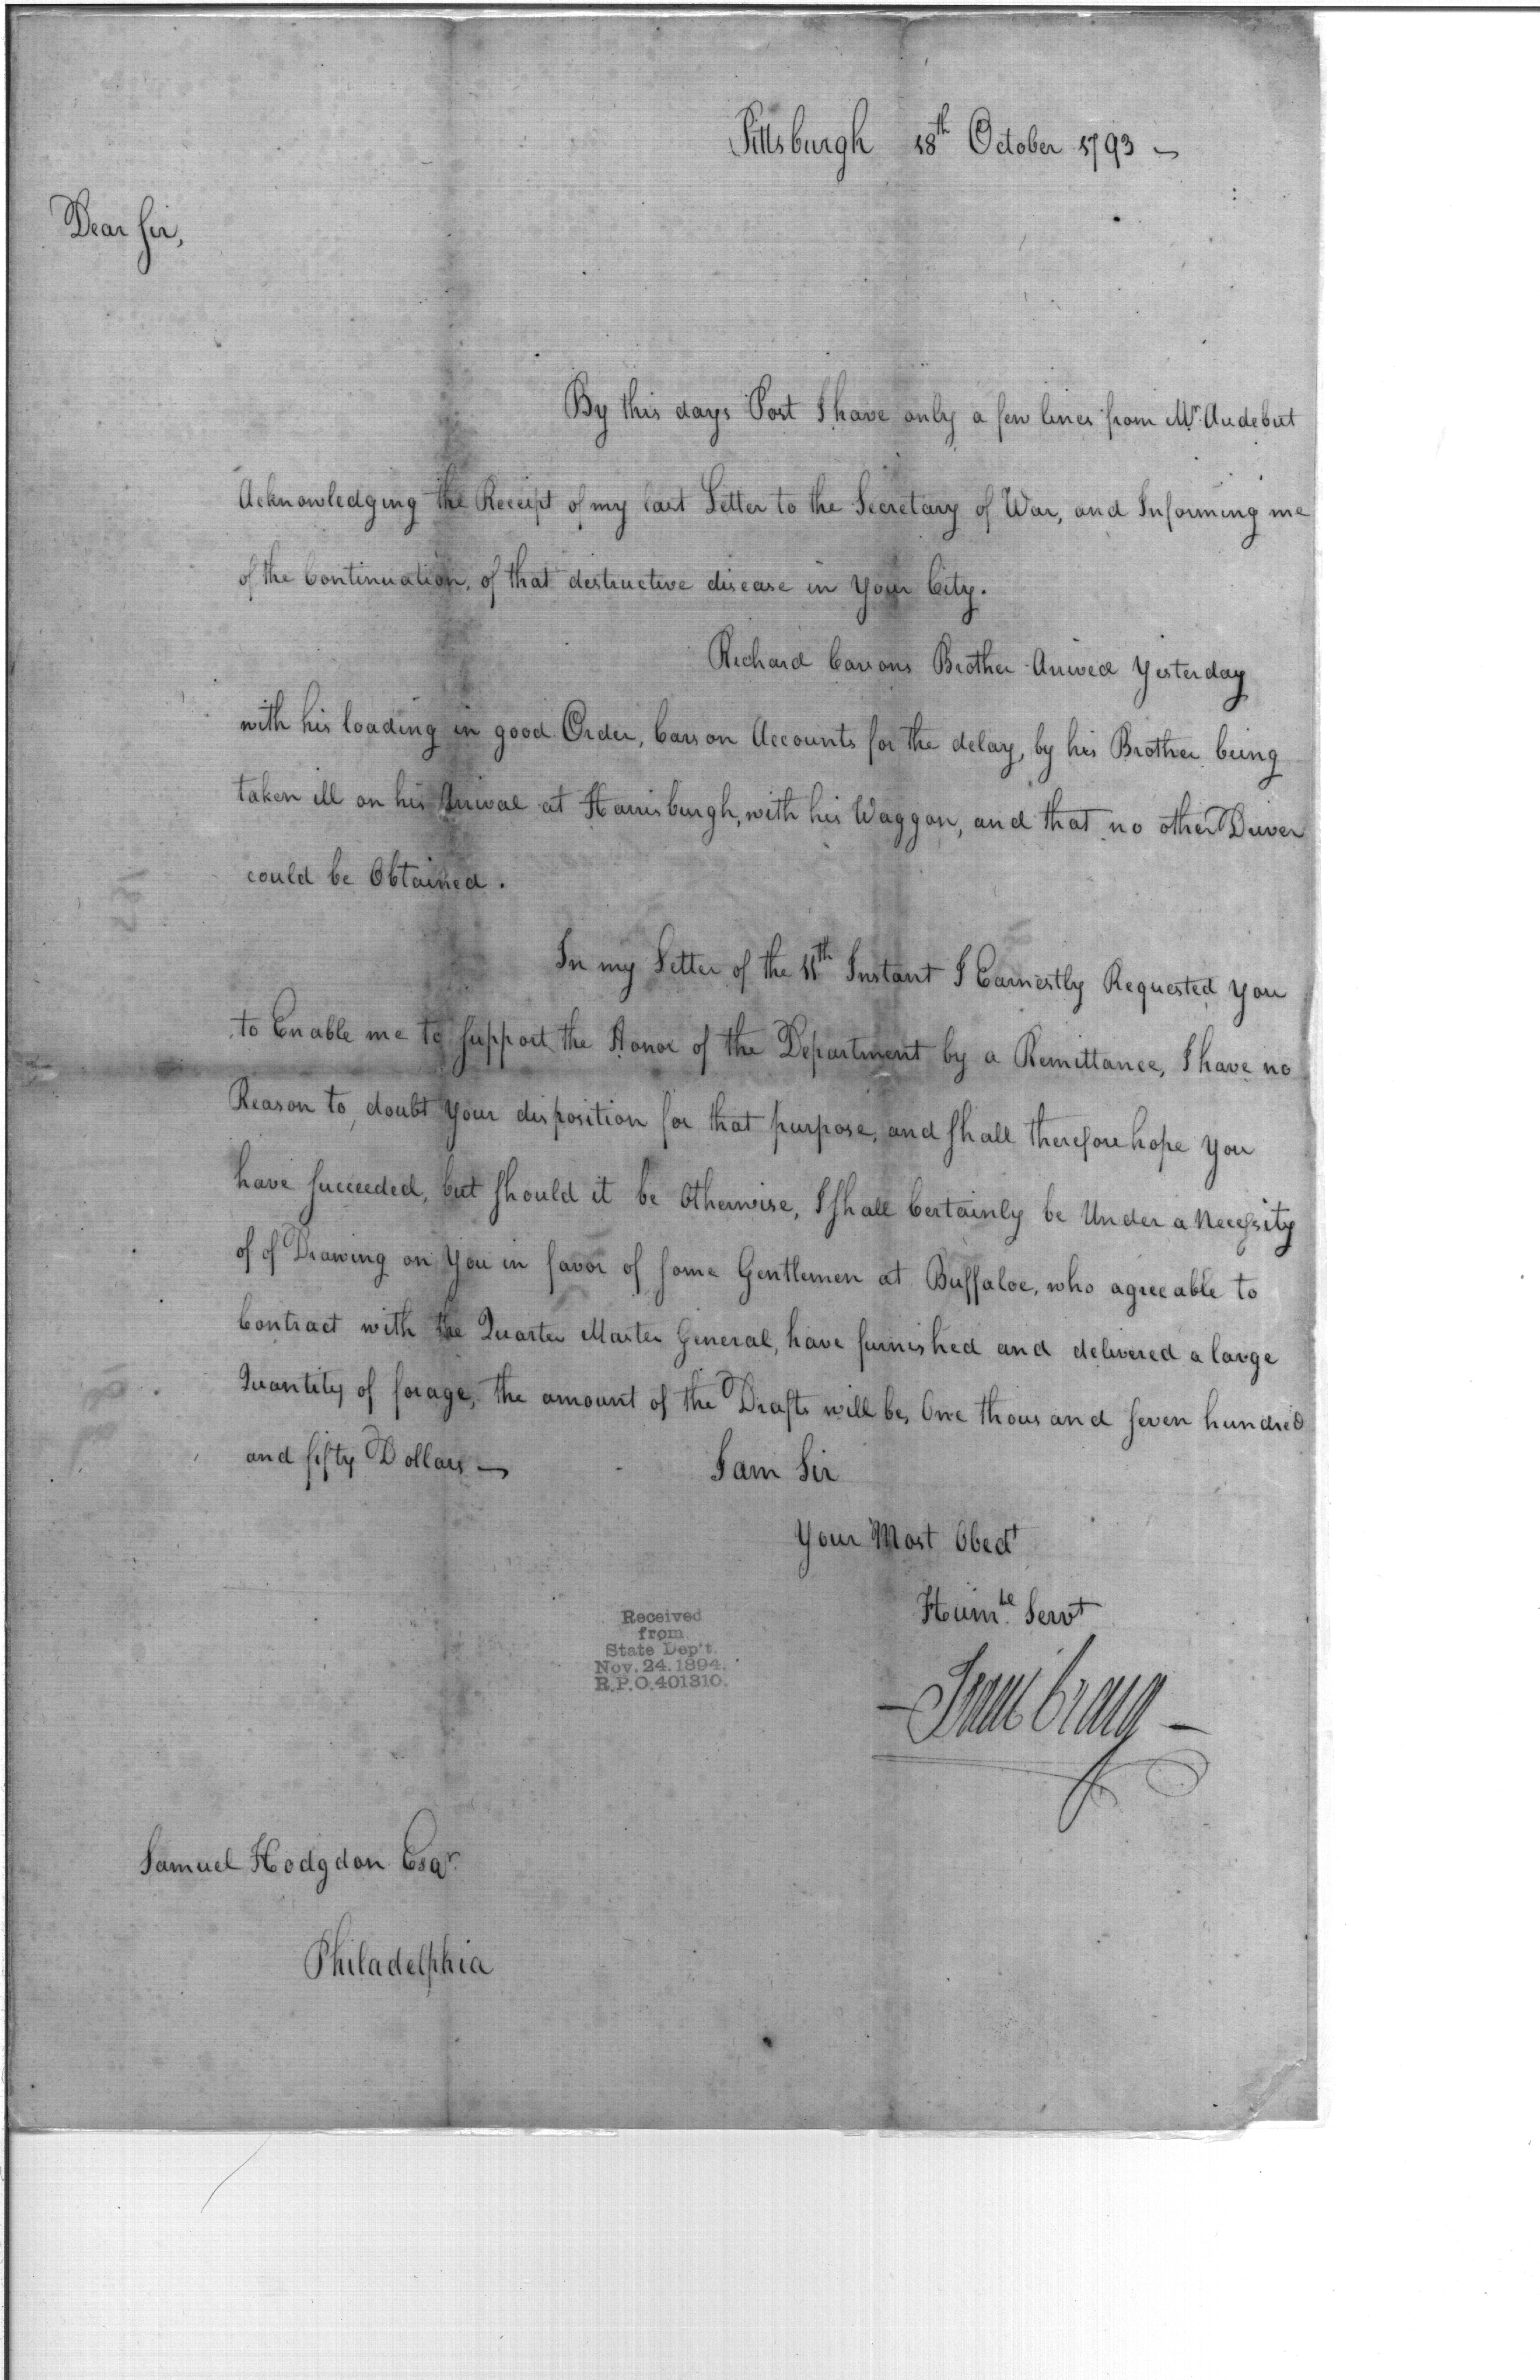 Pittsburgh 18th October 1793
Dear Sir,
By this days Post I have only a few lines from Mr. Audebut
Acknowledging the Receipt of my last Letter to the Secretary of War, and Informing me
of the Continuation, of that destructive disease in your City.
Richard Carsons Brother Arived Yesterday
with his loading in good Order, Carson Accounts for the delay, by his Brother being
taken ill on his Arival at Harrisburgh, with his Waggon, and that no other Driver
could be Obtained.
In my Letter of the 11th Instant I Earnestly Requested you
to Enable me to support the Honor of the Department by a Remittance, I have no
Reason to doubt your disposition for that purpose, and shall therefore hope you
have succeeded, but should it be Otherwise, I shall Certainly be Under a Necessity
of of Drawing on you in favor of some Gentlemen at Buffaloe, who agreeable to
Contract with the Quarter Master General, have furnished and delivered a large
Quantity of forage, the amount of the Drafts will be, One thousand seven hundred
and fifty Dollars —
I am Sir
Your Most Obedt
Humle. Servt
Isaac Craig
Received
from
State Dep't.
Nov. 24. 1894.
R.P.O. 401310.
Samuel Hodgdon Esqr.
Philadelphia